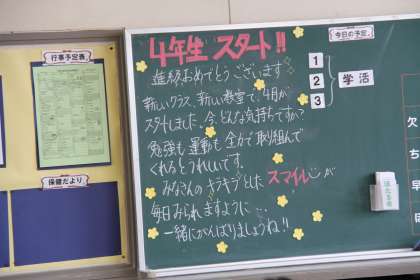 行事予定表
保健だより
4年生 スタート!!
進級おめでとうございます
新しいクラス、新しい教室で、4月が
スタートしました。今、どんな気持ちですか?
勉強も運動も全力で取組んで
くれるとうれしいです。
みなさんのキラキラとしたスマイルが
毎日みられますように…
一緒にがんばりましょうね!!
今日の予定
1
2
3
学活
欠
ち
早
ほ